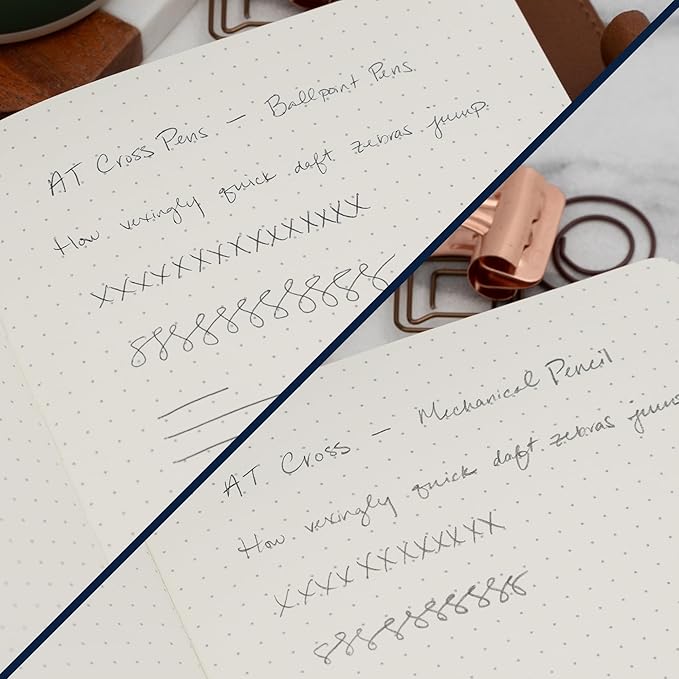 A.T. Cross Pens — Ballpoint Pens
How vexingly quick daft zebras jump.
XXXXXXXXXXXXXXX
8888888888
A.T. Cross — Mechanical Pencil
How vexingly quick daft zebras jump
XXXXXXXXXXXX
8888888888